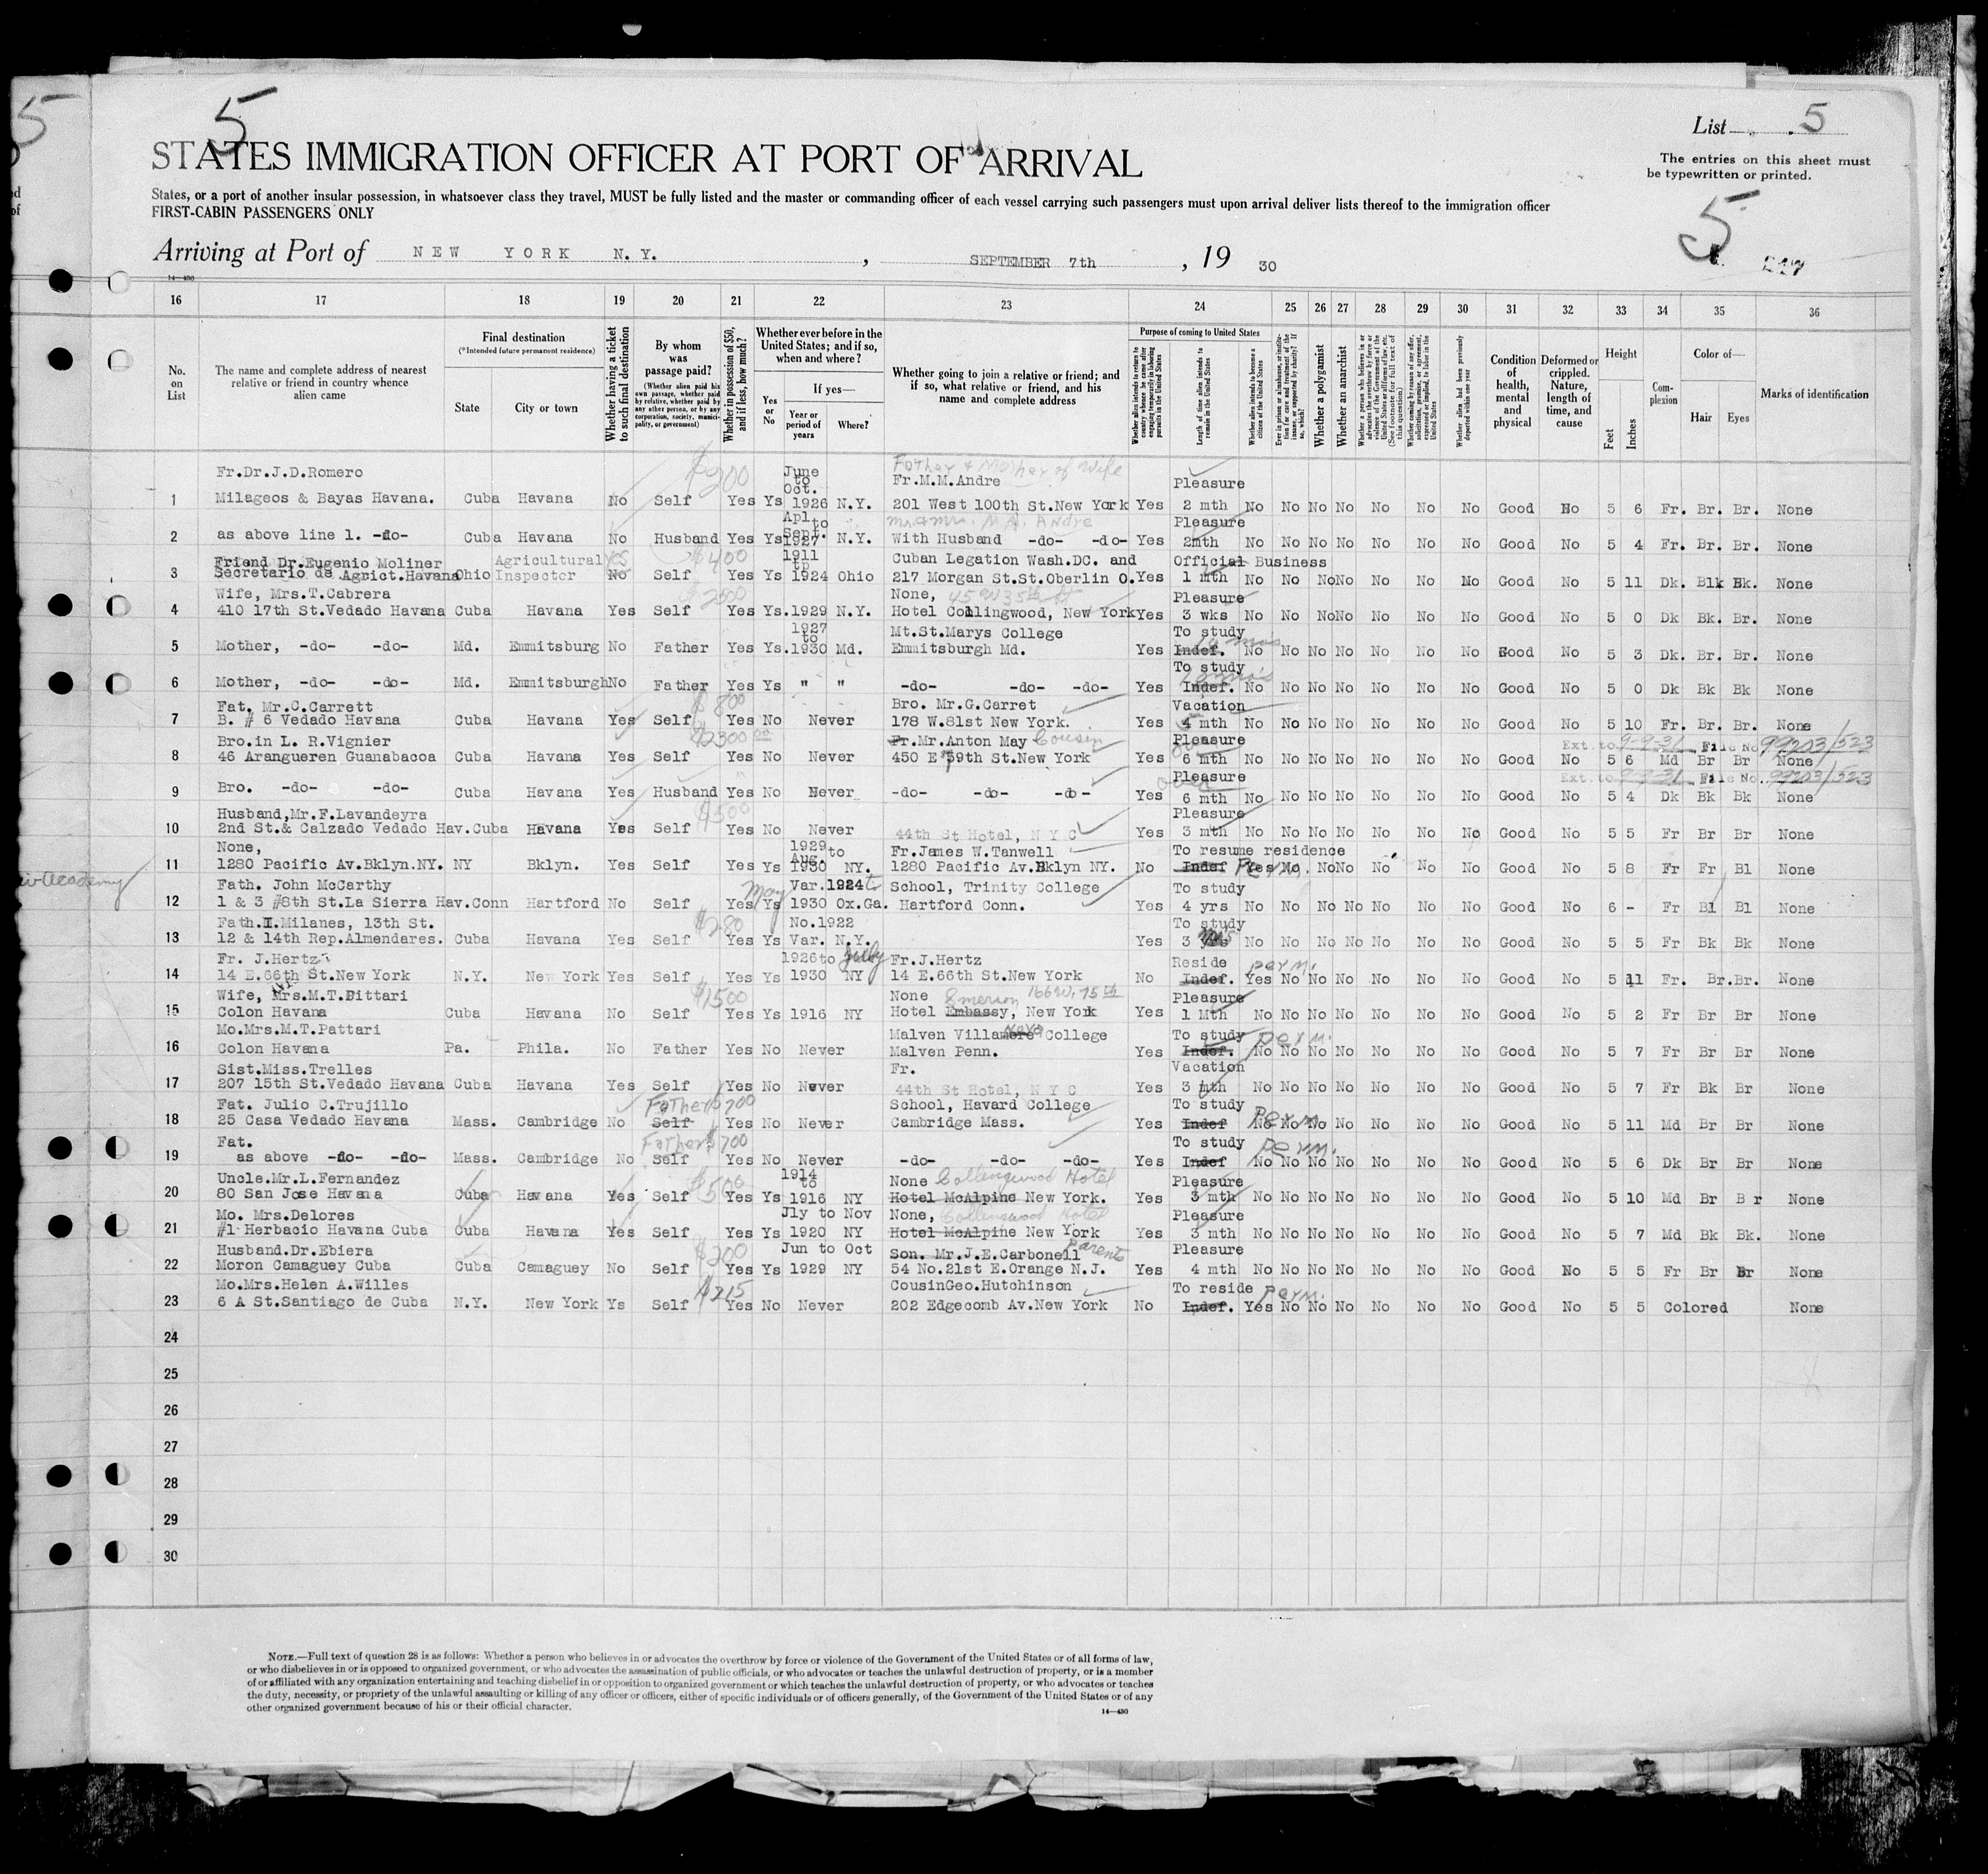 5
5
List 5
STATES IMMIGRATION OFFICER AT PORT OF ARRIVAL
The entries on this sheet must
be typewritten or printed.
States, or a port of another insular possession, in whatsoever class they travel, MUST be fully listed and the master or commanding officer of each vessel carrying such passengers must upon arrival deliver lists thereof to the immigration officer
FIRST-CABIN PASSENGERS ONLY
5
Arriving at Port of NEW YORK N.Y. , SEPTEMBER 7th , 19 30
14—430
16 17 18 19 20 21 22 23 24 25 26 27 28 29 30 31 32 33 34 35 36
No. on List
The name and complete address of nearest relative or friend in country whence alien came
Final destination
(*Intended future permanent residence)
State
City or town
Whether having a ticket to such final destination
By whom was passage paid?
(Whether alien paid his own passage, whether paid by relative, whether paid by any other person, or by any corporation, society, municipality, or government)
Whether in possession of $50, and if less, how much?
Whether ever before in the United States; and if so, when and where?
Yes or No
If yes—
Year or period of years
Where?
Whether going to join a relative or friend; and if so, what relative or friend, and his name and complete address
Purpose of coming to United States
Length of time alien intends to remain in the United States
Whether alien intends to become a citizen of the United States
Whether a polygamist
Whether an anarchist
Condition of health, mental and physical
Deformed or crippled. Nature, length of time, and cause
Height
Feet
Inches
Complexion
Color of—
Hair
Eyes
Marks of identification
Fr.Dr.J.D.Romero $200 June to Oct. Father & Mother of Wife Fr.M.M.Andre Pleasure
1 Milageos & Bayas Havana. Cuba Havana No Self Yes Ys 1926 N.Y. 201 West 100th St.New York Yes 2 mth No No No No No No No Good No 5 6 Fr. Br. Br. None
Apl to Sept. Mr.&Mrs. M.A. Andre Pleasure
2 as above line 1. -do- Cuba Havana No Husband Yes Ys 1927 N.Y. With Husband -do- -do- Yes 2mth No No No No No No No Good No 5 4 Fr. Br. Br. None
Friend Dr.Eugenio Moliner Agricultural Yes $400 1911 to Cuban Legation Wash.DC. and Official Business
3 Secretario de Agrict.Havana Ohio Inspector No Self Yes Ys 1924 Ohio 217 Morgan St.St.Oberlin O. Yes 1 mth No No No No No No No Good No 5 11 Dk. Blk Bk. None
Wife, Mrs.T.Cabrera $2500 None, 45 W 35th St Pleasure
4 410 17th St.Vedado Havana Cuba Havana Yes Self Yes Ys. 1929 N.Y. Hotel Collingwood, New York Yes 3 wks No No No No No No No Good No 5 0 Dk Bk. Br. None
1927 to Mt.St.Marys College To study
5 Mother, -do- -do- Md. Emmitsburg No Father Yes Ys. 1930 Md. Emmitsburgh Md. Yes Indef. No No No No No No No Good No 5 3 Dk. Br. Br. None
To study
6 Mother, -do- -do- Md. Emmitsburgh No Father Yes Ys " " -do- -do- -do- Yes Indef. No No No No No No No Good No 5 0 Dk Bk Bk None
Fat, Mr.C.Carrett $800 Bro. Mr.G.Carret Vacation
7 B. # 6 Vedado Havana Cuba Havana Yes Self Yes No Never 178 W.81st New York. Yes 4 mth No No No No No No No Good No 5 10 Fr. Br. Br. None
Bro.in L. R.Vignier $2300 00 Fr.Mr.Anton May Cousin Pleasure Ext. to 9-9-31 File No 99203/523
8 46 Arangueren Guanabacoa Cuba Havana Yes Self Yes No Never 450 E 79th St.New York Yes 6 mth No No No No No No No Good No 5 6 Md Br Br None
over Pleasure Ext. to File No. 99203/523
9 Bro. -do- -do- Cuba Havana Yes Husband Yes No Never -do- -do- -do- Yes 6 mth No No No No No No No Good No 5 4 Dk Bk Bk None
Husband,Mr.F.Lavandeyra $500 Pleasure
10 2nd St.& Calzado Vedado Hav. Cuba Havana Yes Self Yes No Never 44th St Hotel, N Y C Yes 3 mth No No No No No No No Good No 5 5 Fr Br Br None
None, 1929 to Aug. Fr.James W.Tanwell To resume residence
11 1280 Pacific Av.Bklyn.NY. NY Bklyn. Yes Self Yes Ys 1930 NY. 1280 Pacific Av.Bklyn NY. No Indef Perm. Yes No No No No No No Good No 5 8 Fr Fr Bl None
Fath. John McCarthy May Var.1924 to School, Trinity College To study
12 1 & 3 #8th St.La Sierra Hav. Conn Hartford No Self Yes Ys 1930 Ox.Ga. Hartford Conn. Yes 4 yrs No No No No No No No Good No 6 - Fr Bl Bl None
Fath.I.Milanes, 13th St. $280 No.1922 To study
13 12 & 14th Rep.Almendares. Cuba Havana Yes Self Yes Ys Var. N.Y. Yes 3 No No No No No No No Good No 5 5 Fr Bk Bk None
Fr. J.Hertz 1926 to July Fr.J.Hertz Reside perm.
14 14 E.66th St.New York N.Y. New York Yes Self Yes Ys 1930 NY 14 E.66th St.New York No Indef. Yes No No No No No No Good No 5 11 Fr. Br. Br. None
Wife, Mrs.M.T.Bittari $1500 None Emerson 166 W. 75th Pleasure
15 Colon Havana Cuba Havana No Self Yes Ys 1916 NY Hotel Embassy, New York Yes 1 Mth No No No No No No No Good No 5 2 Fr Br Br None
Mo.Mrs.M.T.Pattari Malven Villamore Nova College To study perm.
16 Colon Havana Pa. Phila. No Father Yes No Never Malven Penn. Yes Indef. No No No No No No No Good No 5 7 Fr Br Br None
Sist.Miss.Trelles Fr. Vacation
17 207 15th St.Vedado Havana Cuba Havana Yes Self Yes No Never 44th St Hotel, N Y C Yes 3 mth No No No No No No No Good No 5 7 Fr Bk Br None
Fat. Julio C.Trujillo Father $700 School, Havard College To study Perm.
18 25 Casa Vedado Havana Mass. Cambridge No Self Yes No Never Cambridge Mass. Yes Indef No No No No No No No Good No 5 11 Md Br Br None
Fat. Father $700 To study perm.
19 as above -do- -do- Mass. Cambridge No Self Yes No Never -do- -do- -do- Yes Indef No No No No No No No Good No 5 6 Dk Br Br None
Uncle.Mr.L.Fernandez $500 1914 to None Collingwood Hotel Pleasure
20 80 San Jose Havana Cuba Havana Yes Self Yes Ys 1916 NY Hotel McAlpine New York. Yes 3 mth No No No No No No No Good No 5 10 Md Br Br None
Mo. Mrs.Delores Jly to Nov None, Collingwood Hotel Pleasure
21 #1 Herbacio Havana Cuba Cuba Havana Yes Self Yes Ys 1920 NY Hotel McAlpine New York Yes 3 mth No No No No No No No Good No 5 7 Md Bk Bk. None
Husband.Dr.Ebiera $200 Jun to Oct Son. Mr.J.E.Carbonell Parents Pleasure
22 Moron Camaguey Cuba Cuba Camaguey No Self Yes Ys 1929 NY 54 No.21st E.Orange N.J. Yes 4 mth No No No No No No No Good No 5 5 Fr Br Br None
Mo.Mrs.Helen A.Willes $215 CousinGeo.Hutchinson To reside perm.
23 6 A St.Santiago de Cuba N.Y. New York Ys Self Yes No Never 202 Edgecomb Av.New York No Indef. Yes No No No No No No Good No 5 5 Colored None
24
25
26
27
28
29
30
NOTE.—Full text of question 28 is as follows: Whether a person who believes in or advocates the overthrow by force or violence of the Government of the United States or of all forms of law,
or who disbelieves in or is opposed to organized government, or who advocates the assassination of public officials, or who advocates or teaches the unlawful destruction of property, or is a member
of or affiliated with any organization entertaining and teaching disbelief in or opposition to organized government or which teaches the unlawful destruction of property, or who advocates or teaches
the duty, necessity, or propriety of the unlawful assaulting or killing of any officer or officers, either of specific individuals or of officers generally, of the Government of the United States or of any
other organized government because of his or their official character.
14—430